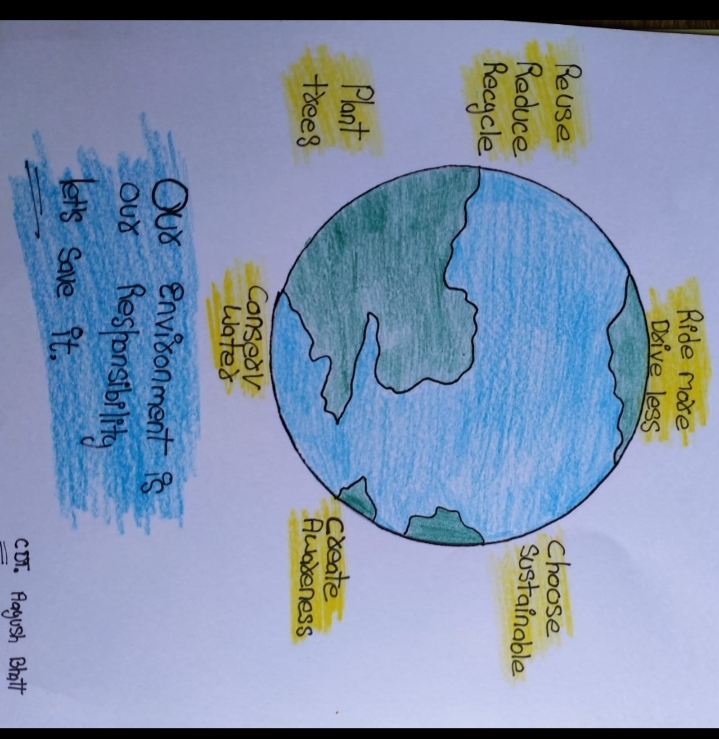 Ride more
Drive less
Reuse
Reduce
Recycle
Choose
Sustainable
Plant
trees
Create
Awareness
Conserv
Water
Our environment is
our Responsibility
let's save it.
CDT. Aayush Bhatt